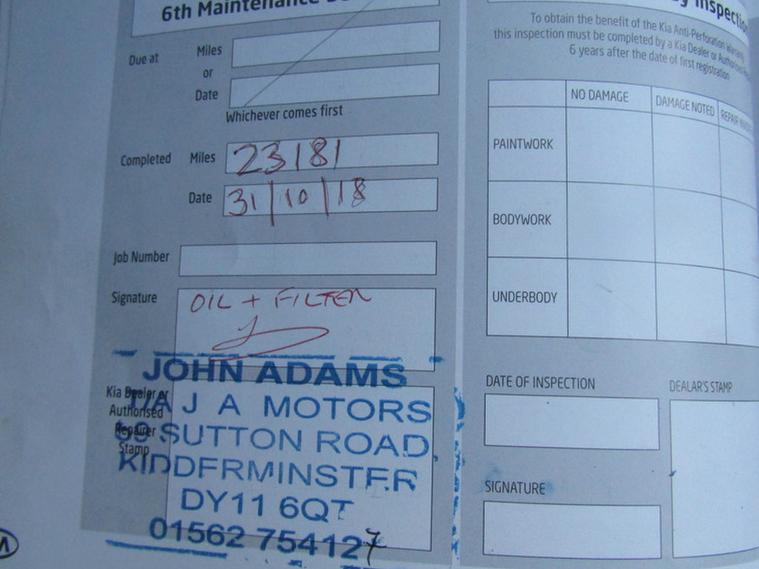 6th Maintenance
Due at
Miles
or
Date
Whichever comes first
Completed
Miles 23181
Date 31/10/18
Job Number
Signature
OIL + FILTER
Kia Dealer or
Authorised
Repairer
Stamp
JOHN ADAMS
T/A J A MOTORS
69 SUTTON ROAD,
KIDDERMINSTER
DY11 6QT
01562 754127
Inspection
To obtain the benefit of the Kia Anti-Perforation Warranty
this inspection must be completed by a Kia Dealer or
6 years after the date of first registration
NO DAMAGE
DAMAGE NOTED
REPAIR
PAINTWORK
BODYWORK
UNDERBODY
DATE OF INSPECTION
DEALAR'S STAMP
SIGNATURE